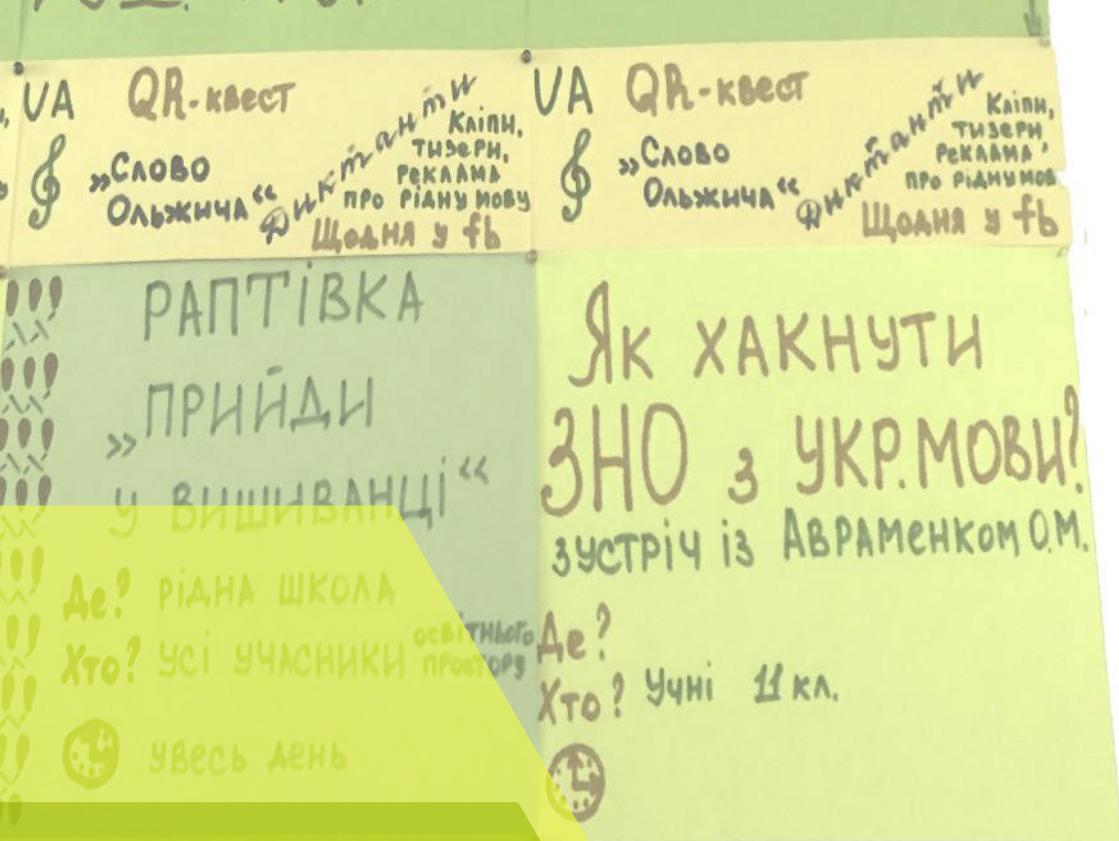 UA QR-квест
Диктанти
Кліпи,
тизери,
реклама
про рідну мову
„Слово
Ольжича“
Щодня у fb
UA QR-квест
Диктанти
Кліпи,
тизери,
реклама,
про рідну мов
„Слово
Ольжича“
Щодня у fb
!!!
РАПТІВКА
„ПРИЙДИ
У ВИШИВАНЦІ“
Де? РІДНА ШКОЛА
Хто? УСІ УЧАСНИКИ ОСВІТНЬОГО
ПРОСТОРУ
УВЕСЬ ДЕНЬ
Як ХАКНУТИ
ЗНО з УКР.МОВИ?
ЗУСТРІЧ ІЗ АВРАМЕНКОМ О.М.
Де?
Хто? Учні 11 кл.